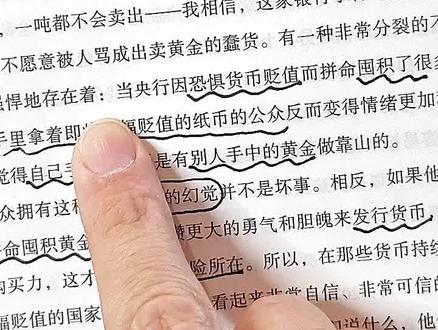 ，一吨都不会卖出——我相信，这家银行
不愿意被人骂成出卖黄金的蠢货。有一种非常分裂的不
强悍地存在着：当央行因恐惧货币贬值而拼命囤积了很
手里拿着即 幅贬值的纸币的公众反而变得情绪更加
觉得自己手 是有别人手中的黄金做靠山的。
众拥有这种 的幻觉并不是坏事。相反，如果他
命囤积黄金 更大的勇气和胆魄来发行货币，
购买力，这才 险所在。所以，在那些货币持续
幅贬值的国家 看起来非常自信、非常可信的
说什么，他